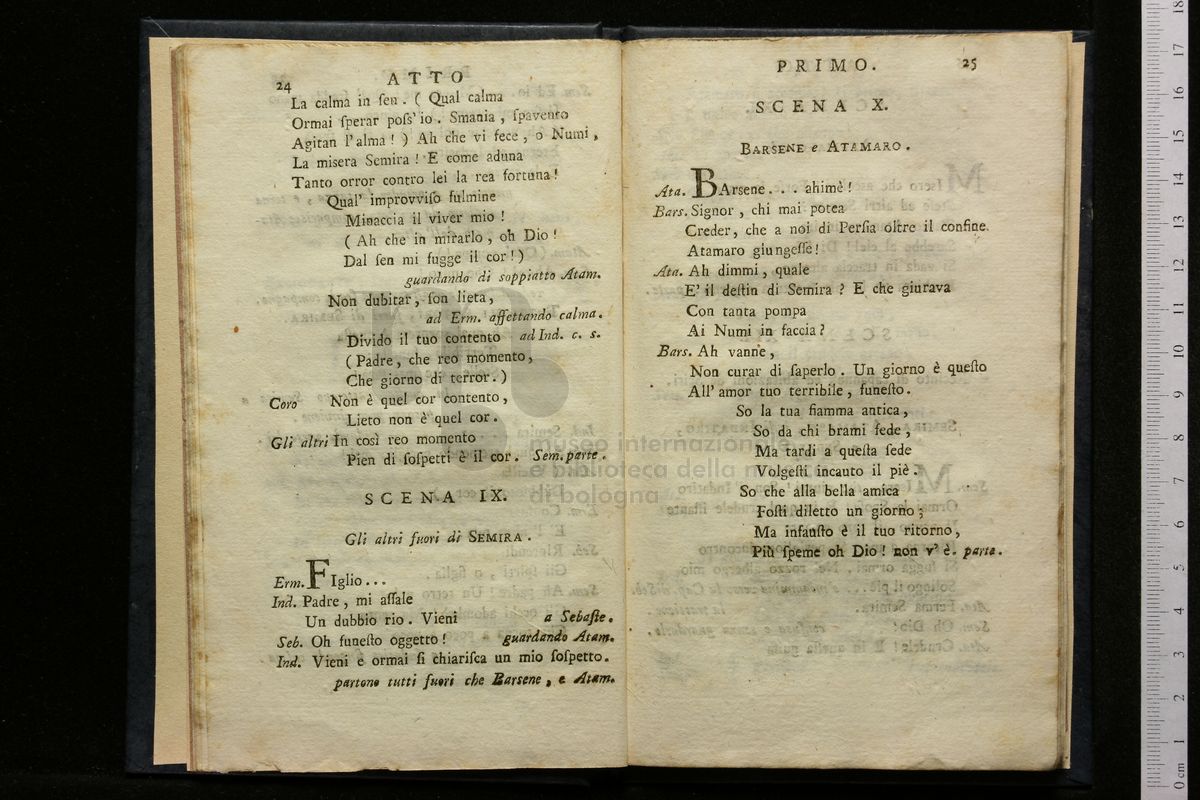 24
ATTO
La calma in ſen . ( Qual calma
Ormai ſperar poſs' io . Smania , ſpavento
Agitan l'alma ! ) Ah che vi fece , o Numi ,
La misera Semira ! E come aduna
Tanto orror contro lei la rea fortuna !
Qual' improvviſo fulmine
Minaccia il viver mio !
( Ah che in mirarlo , oh Dio !
Dal ſen mi fugge il cor ! )
guardando di soppiatto Atam.
Non dubitar , ſon lieta ,
ad Erm. affettando calma.
Divido il tuo contento ad Ind. c. s.
( Padre , che reo momento ,
Che giorno di terror . )
Coro Non è quel cor contento ,
Lieto non è quel cor .
Gli altri In così reo momento
Pien di ſoſpetti è il cor . Sem. parte .
SCENA IX.
Gli altri fuori di SEMIRA .
Erm. FIglio...
Ind. Padre , mi aſſale
Un dubbio rio . Vieni a Sebaſte.
Seb. Oh funeſto oggetto ! guardando Atam.
Ind. Vieni e ormai ſi chiariſca un mio ſoſpetto.
partono tutti fuori che Barsene , e Atam.
PRIMO.
25
SCENA X.
BARSENE e ATAMARO .
Ata. BArsene . . . ahimè !
Bars. Signor , chi mai potea
Creder , che a noi di Perſia oltre il confine
Atamaro giungeſſe !
Ata. Ah dimmi , quale
E' il deſtin di Semira ? E che giurava
Con tanta pompa
Ai Numi in faccia ?
Bars. Ah vanne ,
Non curar di ſaperlo . Un giorno è queſto
All' amor tuo terribile , funeſto .
So la tua fiamma antica ,
So da chi brami fede ,
Ma tardi a queſta ſede
Volgeſti incauto il piè .
So che alla bella amica
Foſti diletto un giorno ;
Ma infauſto è il tuo ritorno ,
Più ſpeme oh Dio ! non v' è . parte .
museo internazionale
e biblioteca della m
di bologna